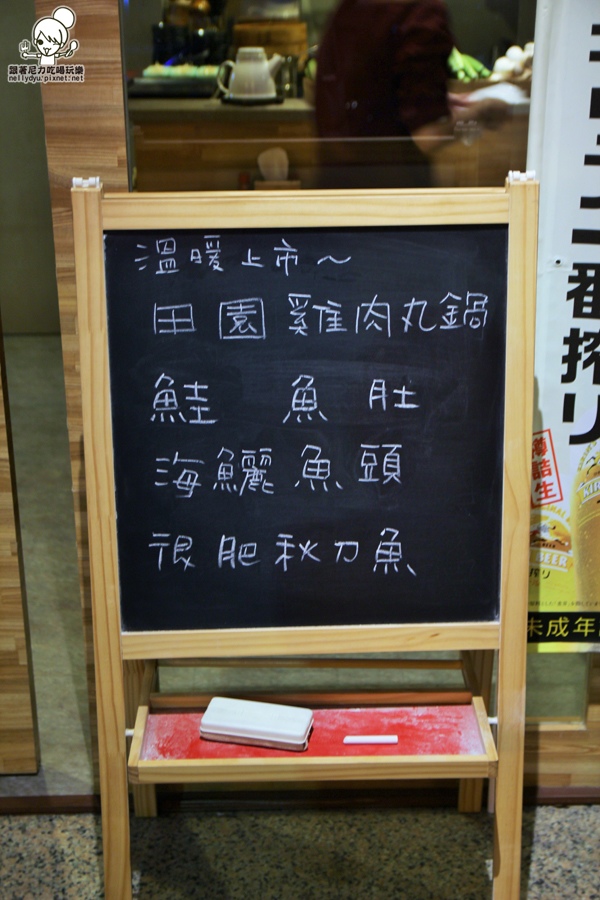 跟著尼力吃喝玩樂
nellydyu.pixnet.net
溫暖上市~
田園雞肉丸鍋
鮭魚肚
海鱺魚頭
很肥秋刀魚
一番搾り
樽詰生
BEER
搾り
未成年